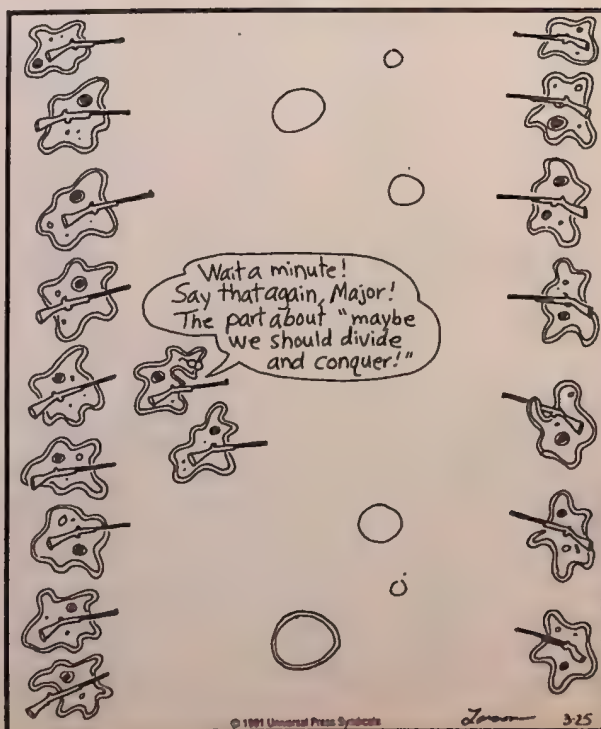 Wait a minute!
Say that again, Major!
The part about "maybe
we should divide
and conquer!"
© 1991 Universal Press Syndicate
Larson
3-25